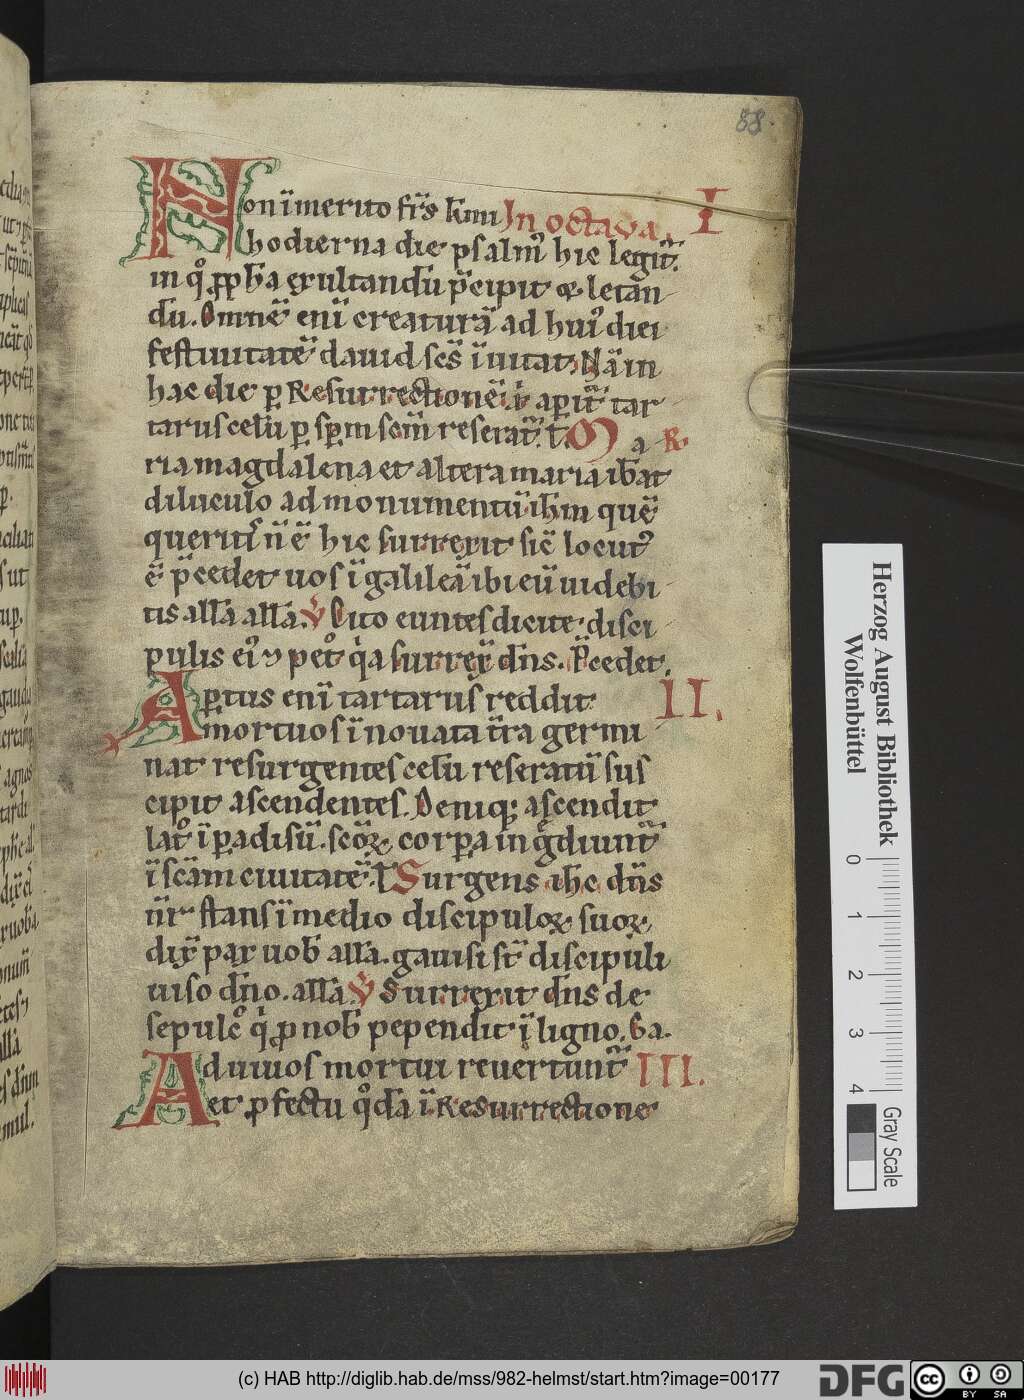 88.
Non īmerito fr̄s kmi In octava. I
hodierna die psalm᷒ hic legit᷑.
in qͦ ꝓp̄ha exultandū p̄cipit & letan
dū. Omnē enī creaturā ad hui᷒ diei
festiuitatē dauid sc̄s īuitat. Nā in
hac die ꝑ Resurrectionē i apit᷑ tar
tarus celū ꝑ sp̄m scm̄ reserat᷑. t̄. Ma R̄
ria magdalena et altera maria ib̄at
diluculo ad monumentū ih̄m quē
querit᷑ n̄ ē hic surrexit sic̄ locut᷒
ē p̄cedet uos ī galileā ibi eū uidebi
tis all̄a all̄a. V̄ Cito euntes dicite discipulis
ei᷒ ⁊ petͦ q̇a surrex̄ dn̄s. P̄cedet.
Aꝑtus enī tartarus reddit II.
mortuos īnouata t̄ra germi
nat resurgentes celū reseratū sus
cipit ascendentes. Deniq; ascendit
latͦ ī ꝑadisū. scōꝝ corꝑa ingͣdiunt᷑
ī scām ciuitatē. R̄ Surgens ihc dn̄s
nr̄ stans ī medio discipuloꝝ suoꝝ
dix̄ pax uob̄ all̄a. gauisi st̄ discipuli
uiso dn̄o. all̄a V̄ Surrexit dn̄s de
sepulcͦ q̇ ꝓ nob̄ pependit ī ligno. Ga.
Ad uiuos mortui reuertunt᷑ III.
et ꝓfectu qͦdā ī Resurrectione
Herzog August Bibliothek
Wolfenbüttel
0 1 2 3 4
Gray Scale
(c) HAB http://diglib.hab.de/mss/982-helmst/start.htm?image=00177
DFG
cc BY SA